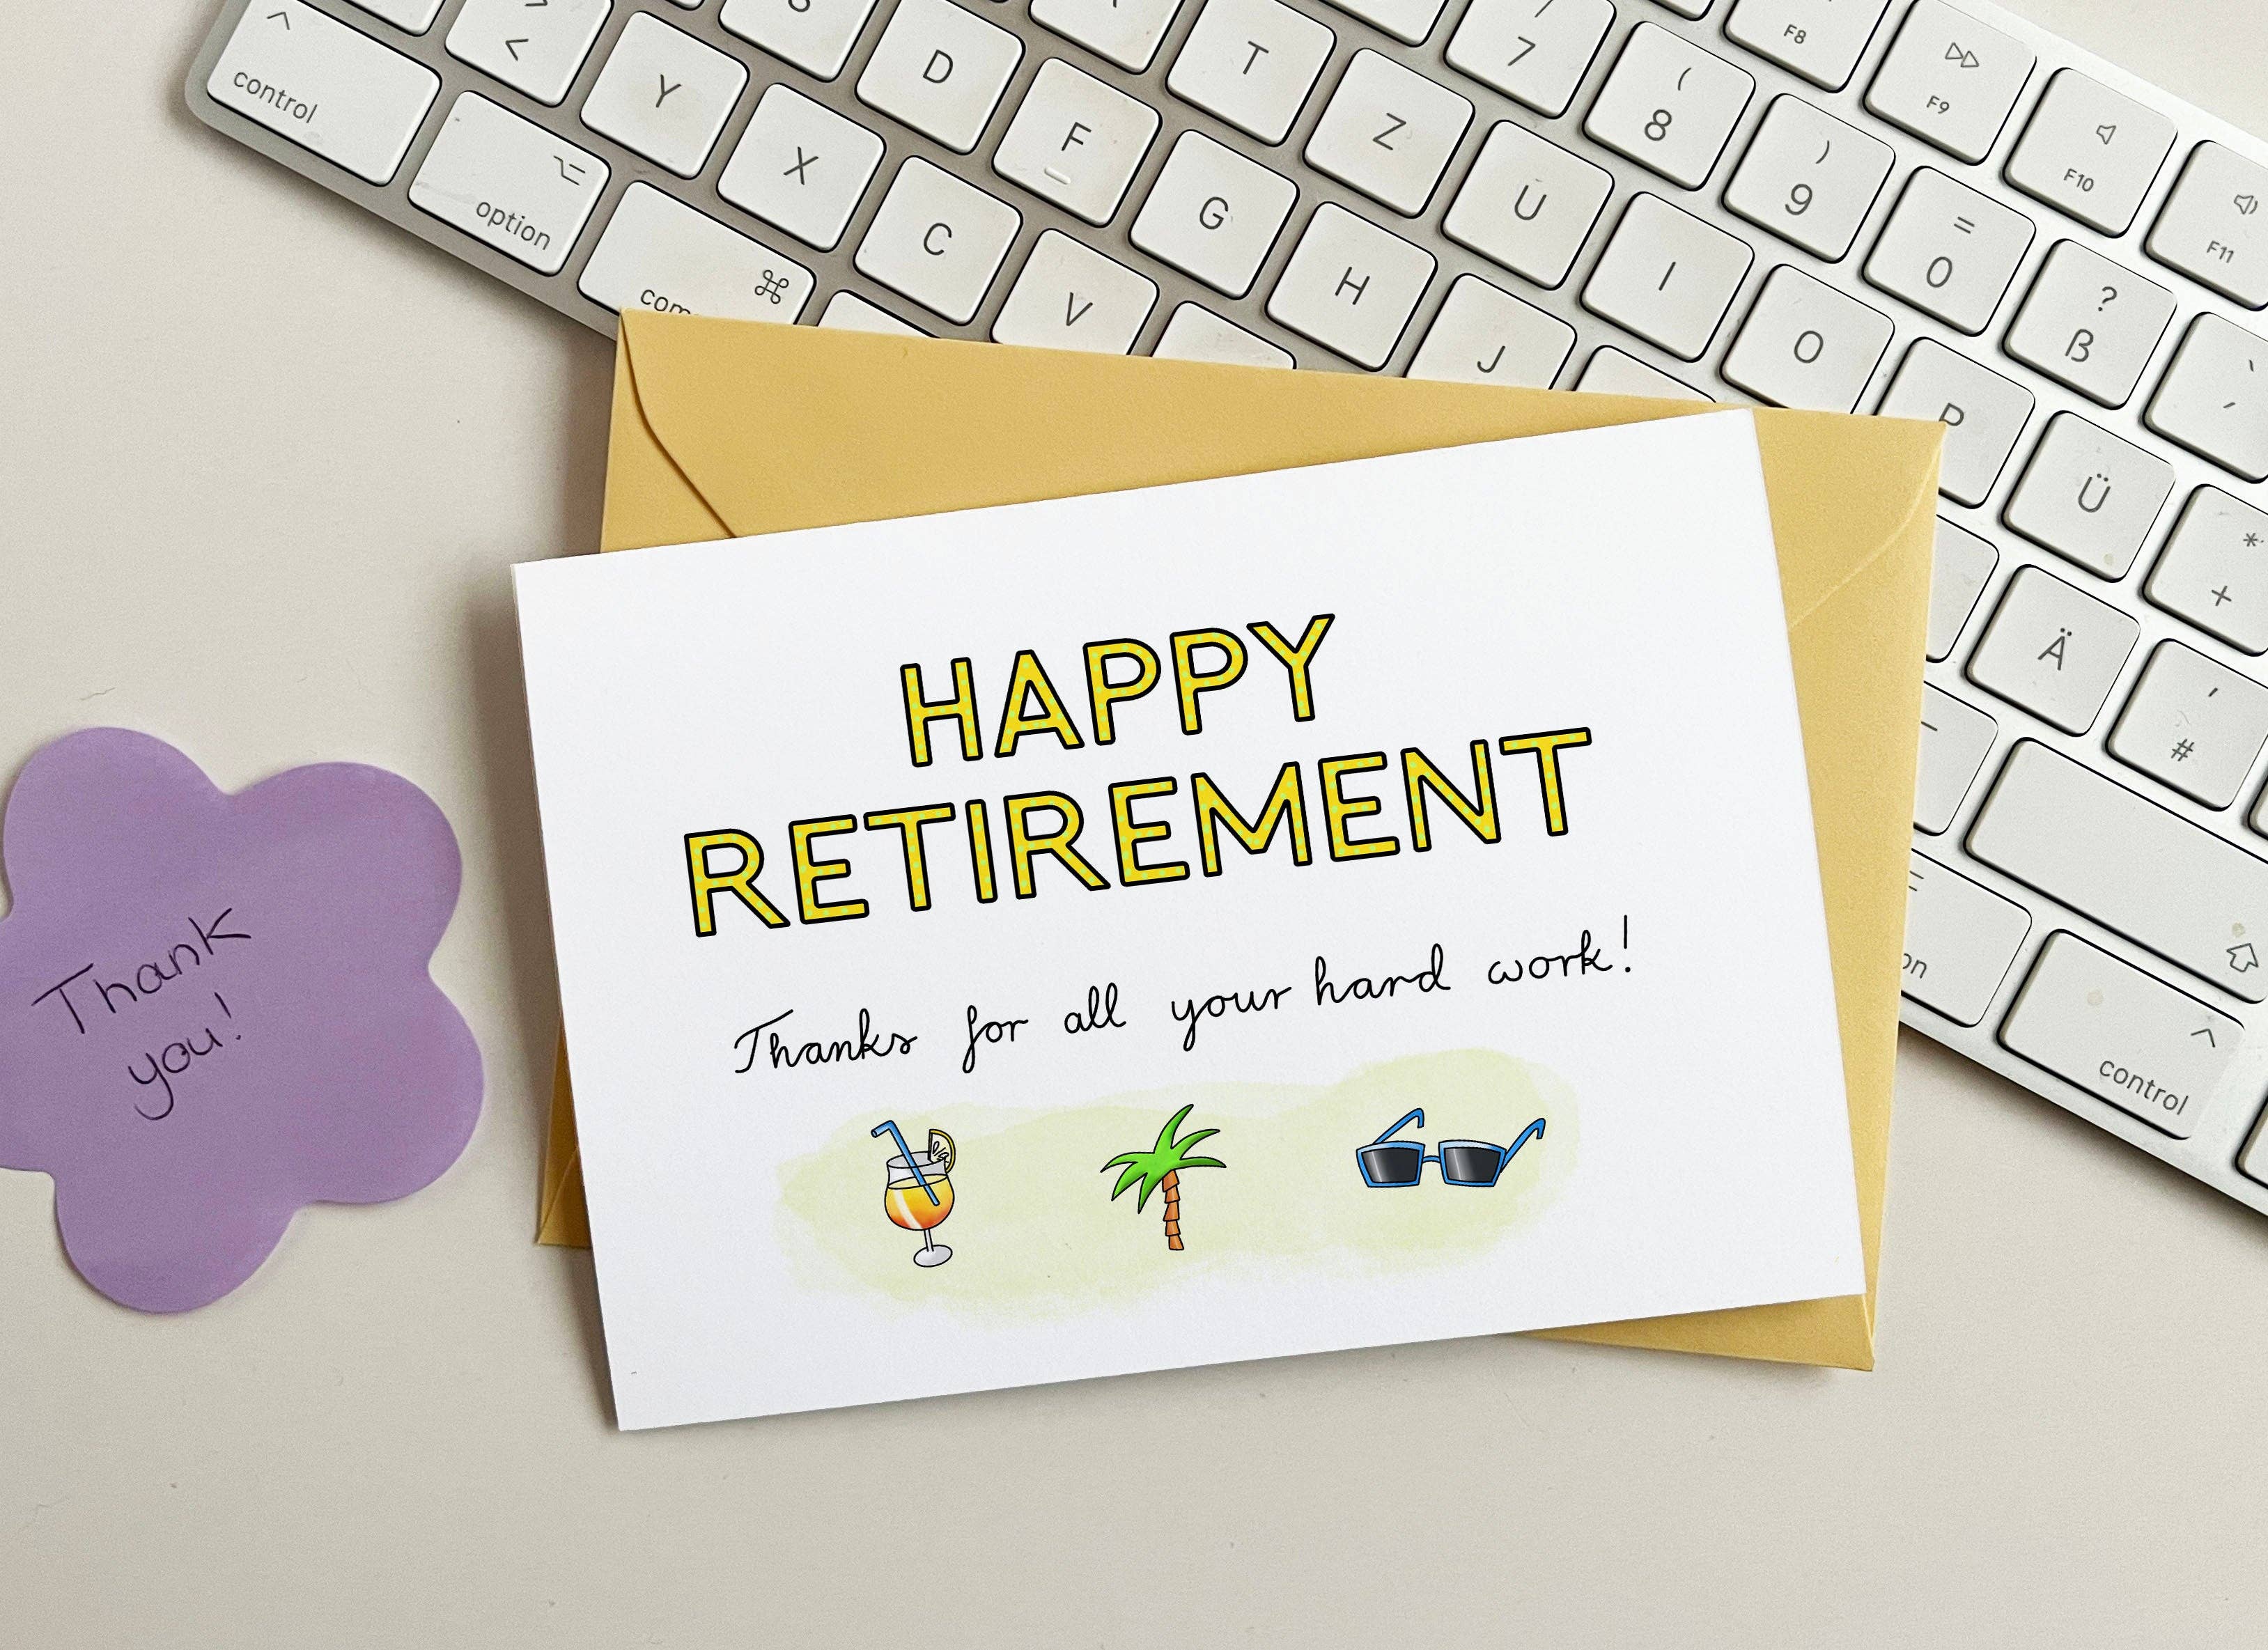 HAPPY
RETIREMENT
Thanks for all your hard work!
Thank
you!
F8
F9
F10
F11
/
7
(
8
)
9
=
0
?
ß
>
<
D
T
Z
U
I
O
P
Ü
*
+
F
G
H
J
Ä
'
#
Y
X
C
V
control
option
control